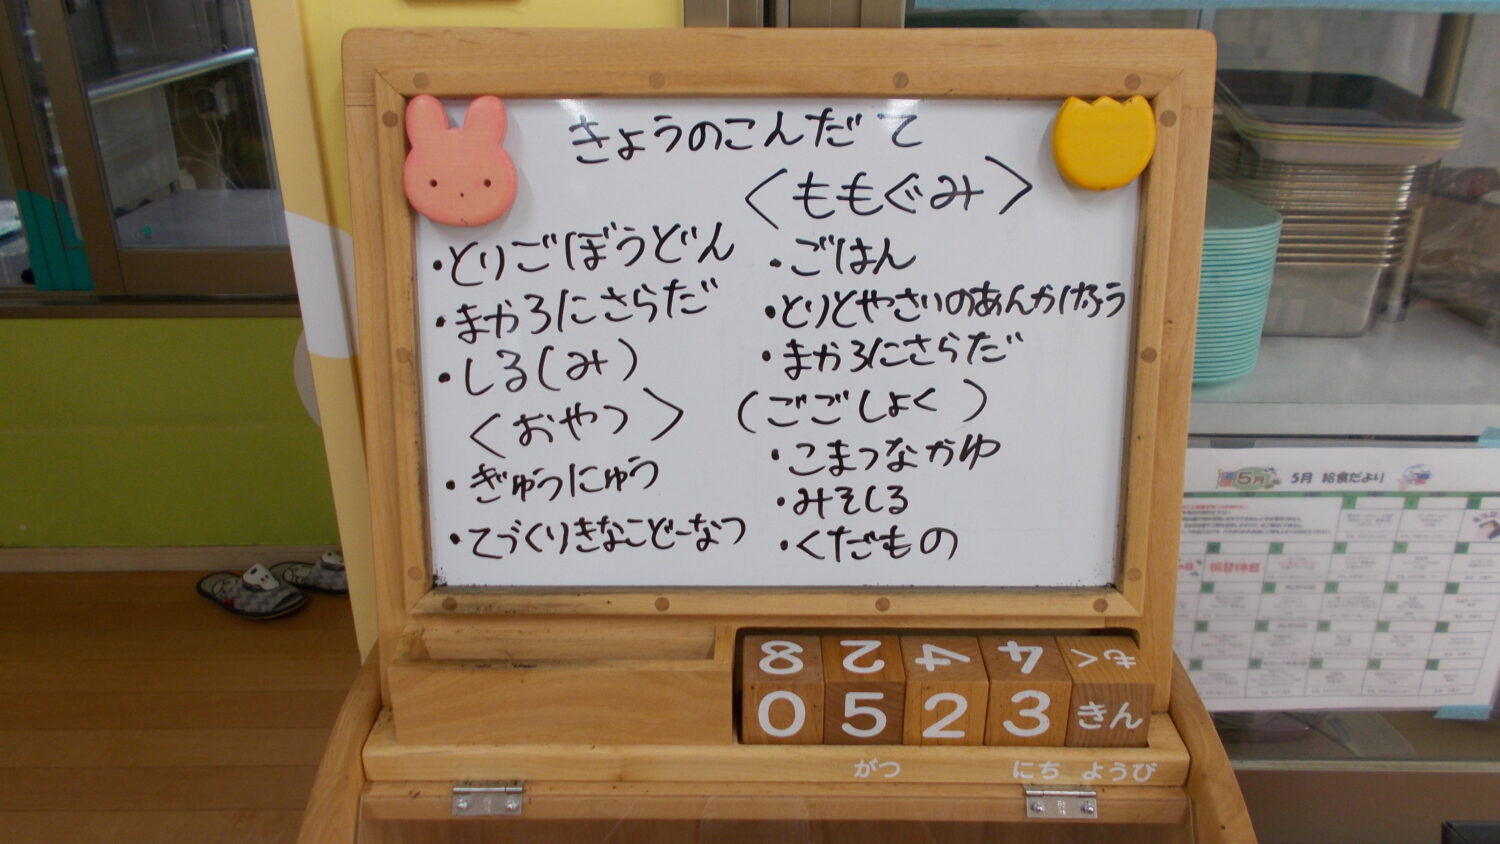 きょうのこんだて
・とりごぼうどん
・まかろにさらだ
・しる(み)
<おやつ>
・ぎゅうにゅう
・てづくりきなこどーなつ
<ももぐみ>
・ごはん
・とりとやさいのあんかけふう
・まかろにさらだ
(ごごしょく)
・こまつなかゆ
・みそしる
・くだもの
8 2 4 4 もく
0 5 2 3 きん
がつ にち ようび
5月 5月 給食だより
振替休日